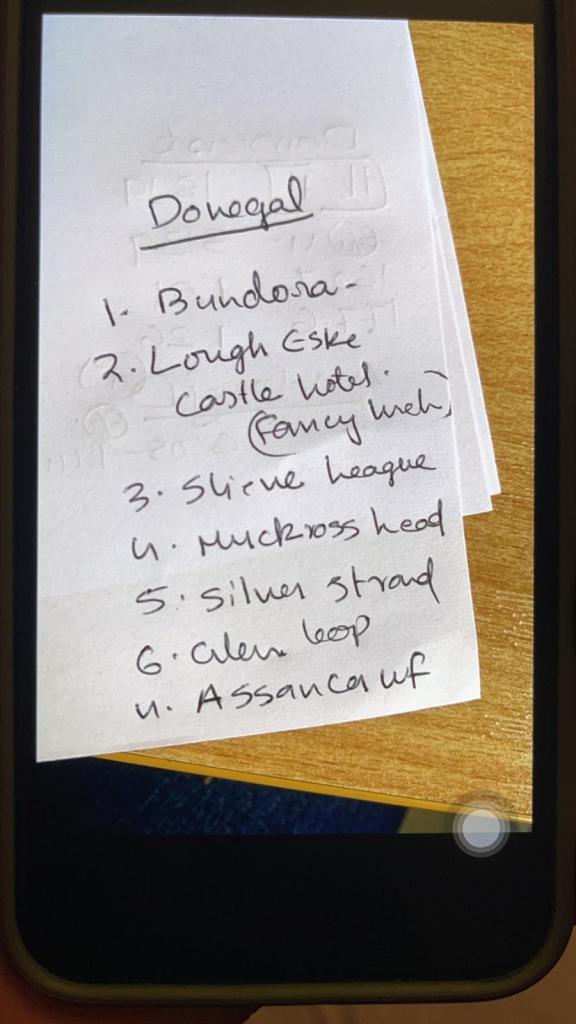 Donegal
1. Bundora-
2. Lough Eske
Castle hotel.
(Fancy lunch)
3. Slieve league
4. Muckross head
5. Silver strand
6. Glen loop
4. Assanca wf